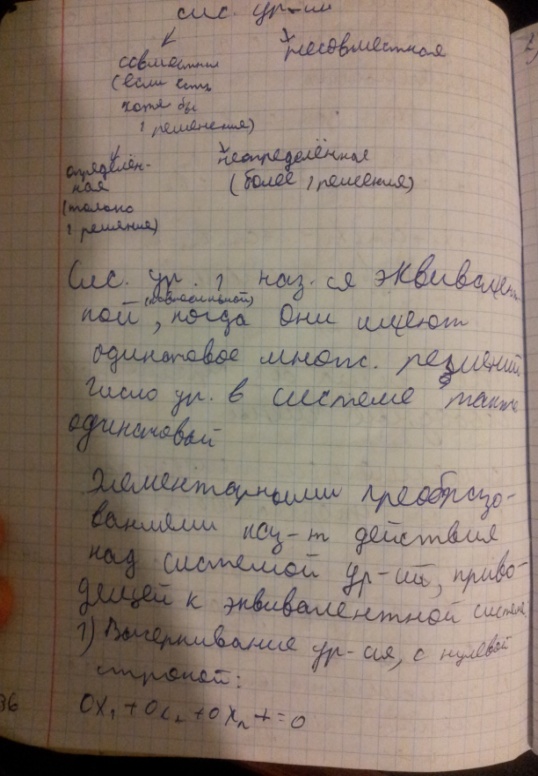 сис. ур-ий
совместная
несовместная
(если есть
хотя бы
1 решения)
определён-
ная
(только
1 решение)
неопределённая
(более 1 решения)
Сис. ур. 1 наз-ся эквивалент
(равносильной)
ной, когда они имеют
одинаковое множ. решений
Число ур. в системе также
одинаковой
Элементарными преобразо-
ваниями наз-т действия
над системой ур-ий, приво-
дящей к эквивалентной системе
1) Вычеркивание ур-ия, с нулевой
строкой:
0x₁ + 0x₂ + 0xₙ + = 0
36